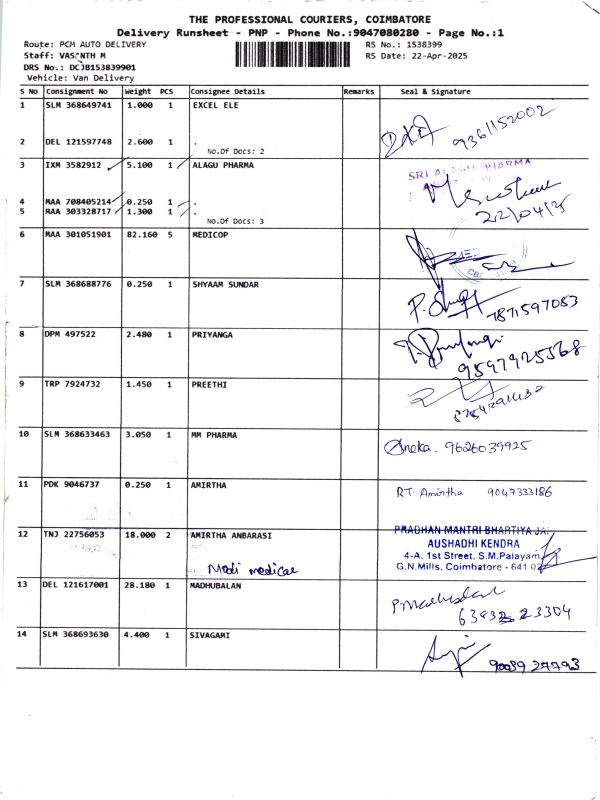 THE PROFESSIONAL COURIERS, COIMBATORE
Delivery Runsheet - PNP - Phone No.:9047080280 - Page No.:1
Route: PCM AUTO DELIVERY RS No.: 1538399
Staff: VASANTH M RS Date: 22-Apr-2025
DRS No.: DCJB153839901
Vehicle: Van Delivery
S No Consignment No Weight PCS Consignee Details Remarks Seal & Signature
1 SLM 368649741 1.000 1 EXCEL ELE
9361152002
2 DEL 121597748 2.600 1 .
No.Of Docs: 2
3 IXM 3582912 5.100 1 ALAGU PHARMA
SRI ALAGU PHARMA
4 MAA 708405214 0.250 1 .
5 MAA 303328717 1.300 1 .
22/04/25
No.Of Docs: 3
6 MAA 301051901 82.160 5 MEDICOP
7 SLM 368688776 0.250 1 SHYAAM SUNDAR
7871597083
8 DPM 497522 2.480 1 PRIYANGA
9597925568
9 TRP 7924732 1.450 1 PREETHI
10 SLM 368633463 3.050 1 MM PHARMA
Sneka. 9626039925
11 PDK 9046737 0.250 1 AMIRTHA
RT. Amirtha 9047333186
12 TNJ 22756053 18.000 2 AMIRTHA ANBARASI
PRADHAN MANTRI BHARTIYA JA
AUSHADHI KENDRA
4-A, 1st Street, S.M.Palayam
G.N.Mills, Coimbatore - 641 02
Modi medical
13 DEL 121617001 28.180 1 MADHUBALAN
P Madhubalan
14 SLM 368693630 4.400 1 SIVAGAMI